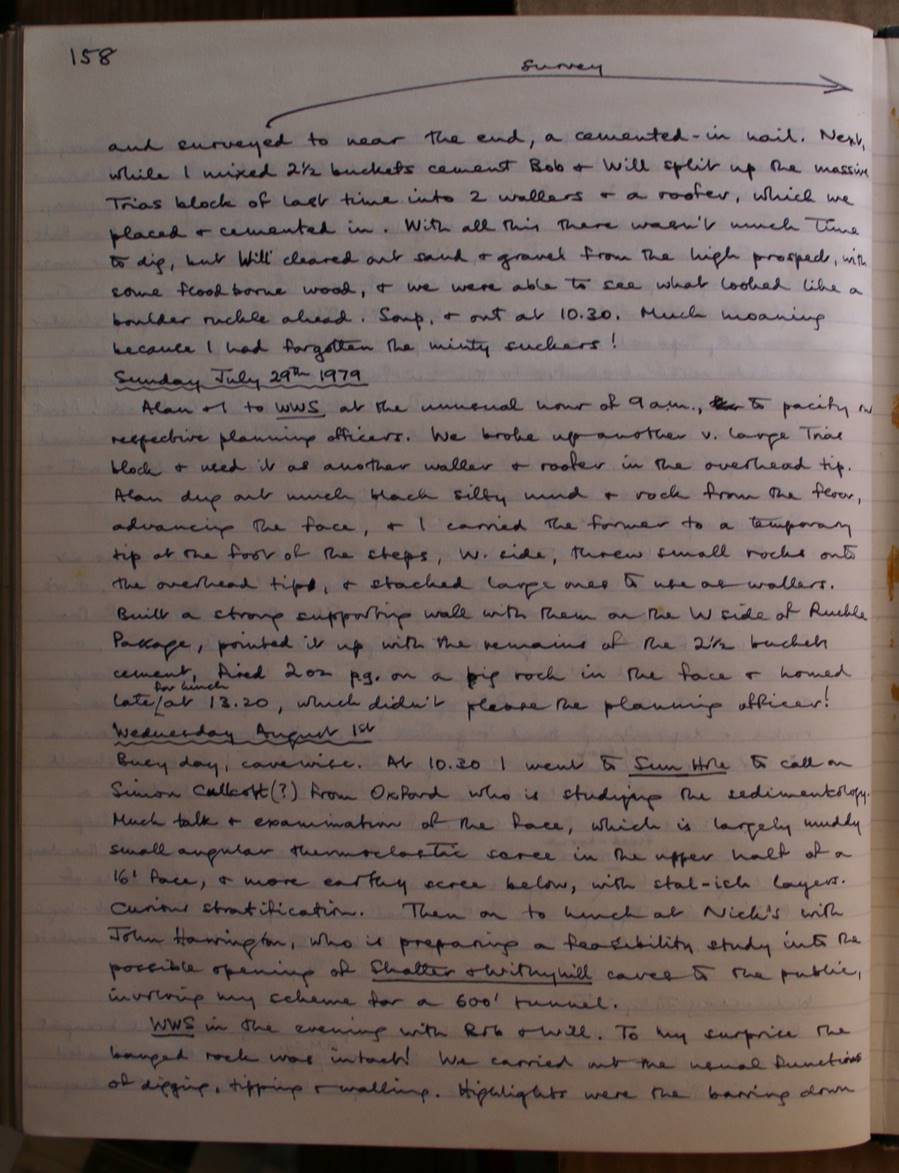 158
survey
and surveyed to near the end, a cemented-in nail. Next,
while I mixed 2½ buckets cement Bob + Will split up the massive
Trias block of last time into 2 wallers + a roofer, which we
placed + cemented in. With all this there wasn't much time
to dig, but Will cleared out sand + gravel from the high prospect, with
some flood borne wood, + we were able to see what looked like a
boulder ruckle ahead. Soup, + out at 10.30. Much moaning
because I had forgotten the minty suckers!
Sunday July 29th 1979
Alan + I to WWS at the unusual hour of 9 a.m., to pacify our
respective planning officers. We broke up another v. large Trias
block + used it as another waller + roofer in the overhead tip.
Alan dug out much black silty mud + rock from the floor,
advancing the face, + I carried the former to a temporary
tip at the foot of the steps, W. side, threw small rocks onto
the overhead tips, + stacked large ones to use as wallers.
Built a strong supporting wall with them on the W side of Ruckle
Passage, pointed it up with the remains of the 2½ buckets
cement, fired 2oz pg. on a big rock in the face + homed
late for lunch at 13.20, which didn't please the planning officer!
Wednesday August 1st
Busy day, cavewise. At 10.30 I went to Sun Hole to call on
Simon Collcott(?) from Oxford who is studying the sedimentology.
Much talk + examination of the face, which is largely muddy
small angular thermoclastic scree in the upper half of a
16' face, + more earthy scree below, with stal-ich layers.
Curious stratification. Then on to lunch at Nick's with
John Harrington, who is preparing a feasibility study into the
possible opening of Shatter + Withyhill caves to the public,
involving my scheme for a 600' tunnel.
WWS in the evening with Bob + Will. To my surprise the
banged rock was intact! We carried out the usual functions
of digging, tipping + walling. Highlights were the barring down